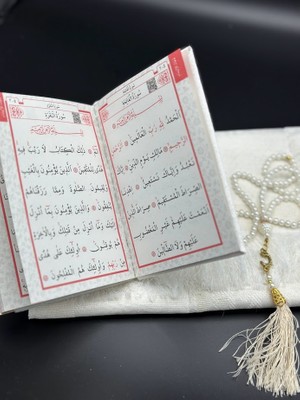 سُورَةُ الْفَاتِحَةِ
بِسْمِ اللّٰهِ الرَّحْمٰنِ الرَّحِيمِ
اَلْحَمْدُ لِلّٰهِ رَبِّ الْعَالَمِينَ اَلرَّحْمٰنِ
الرَّحِيمِ مَالِكِ يَوْمِ الدِّينِ اِيَّاكَ
نَعْبُدُ وَاِيَّاكَ نَسْتَعِينُ اِهْدِنَا
الصِّرَاطَ الْمُسْتَقِيمَ صِرَاطَ الَّذِينَ
اَنْعَمْتَ عَلَيْهِمْ غَيْرِ الْمَغْضُوبِ
عَلَيْهِمْ وَلَا الضَّالِّينَ
سُورَةُ الْبَقَرَةِ
بِسْمِ اللّٰهِ الرَّحْمٰنِ الرَّحِيمِ
الٓمٓ ذٰلِكَ الْكِتَابُ لَا رَيْبَ فِيهِ
هُدًى لِلْمُتَّقِينَ اَلَّذِينَ يُؤْمِنُونَ بِالْغَيْبِ
وَيُقِيمُونَ الصَّلٰوةَ وَمِمَّا رَزَقْنَاهُمْ
يُنْفِقُونَ وَالَّذِينَ يُؤْمِنُونَ بِمَا اُنْزِلَ
اِلَيْكَ وَمَا اُنْزِلَ مِنْ قَبْلِكَ وَبِالْاٰخِرَةِ
هُمْ يُوقِنُونَ اُولٰٓئِكَ عَلٰى هُدًى
مِنْ رَبِّهِمْ وَاُولٰٓئِكَ هُمُ الْمُفْلِحُونَ